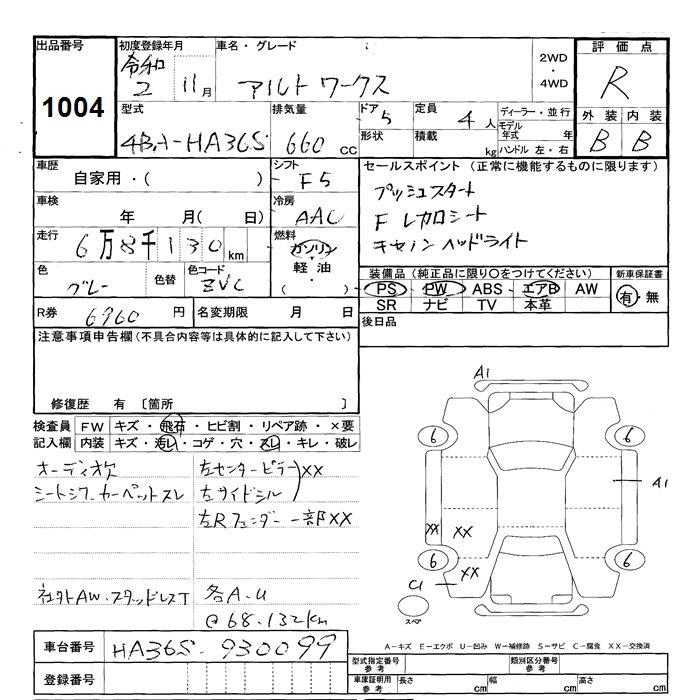 出品番号 初度登録年月 車名・グレード 評価点
1004 令和 2 11月 アルト ワークス 2WD・4WD R
型式 排気量 ドア 5 定員 4人 ディーラー・並行 外装 内装
4BA-HA36S 660cc 形状 積載 kg モデル年式 年 B B
ハンドル 左・右
車歴 シフト セールスポイント (正常に機能するものに限ります)
自家用・( ) F5 プッシュスタート
車検 冷房 F レカロシート
年 月( 日) AAC キセノン ヘッドライト
走行 燃料
6万8千130km ガソリン
軽油
( )
色 色替 色コード 装備品 (純正品に限り○をつけてください) 新車保証書
グレー ZVC PS PW ABS エアB AW 有・無
SR ナビ TV 本革
R券 6960円 名変期限 月 日 後日品
注意事項申告欄 (不具合内容等は具体的に記入して下さい)
修復歴 有 〔箇所 〕
検査員 FW キズ・飛石・ヒビ割・リペア跡・×要
記入欄 内装 キズ・汚レ・コゲ・穴・スレ・キレ・破レ
オーディオ欠 左センターピラー XX
シートシワ カーペットスレ 左サイドシル
左Rフェンダー 一部XX
社外AW・スタッドレスT 各A・U
@68.132km
A1
6 6
A1
XX XX
6 6
XX
C1
スペア
車台番号 HA36S-930099
A-キズ E-エクボ U-凹み W-補修跡 S-サビ C-腐食 XX-交換済
登録番号
型式指定番号 参考 類別区分番号 参考
車庫証明用 参考 長さ cm 幅 cm 高さ cm